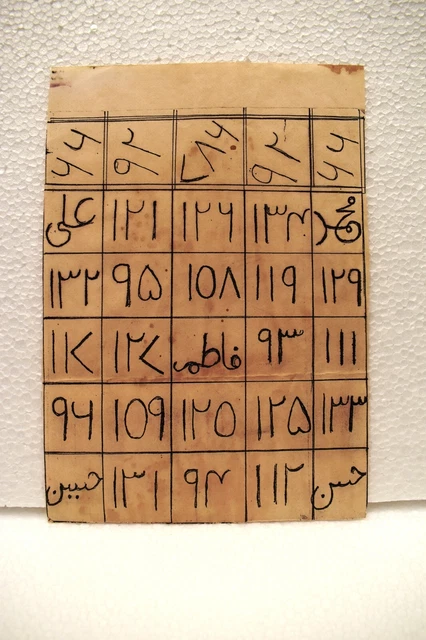 ۶۶ ۹۲ ۷۸۶ ۹۲ ۶۶
محمد ۱۳۴ ۱۲۶ ۱۲۱ علی
۱۲۹ ۱۱۹ ۱۰۸ ۹۵ ۱۳۲
۱۱۱ ۹۳ فاطمہ ۱۲۷ ۱۱۷
۱۳۳ ۱۲۵ ۱۲۰ ۱۰۹ ۹۶
حسن ۱۱۲ ۹۴ ۱۳۱ حسین